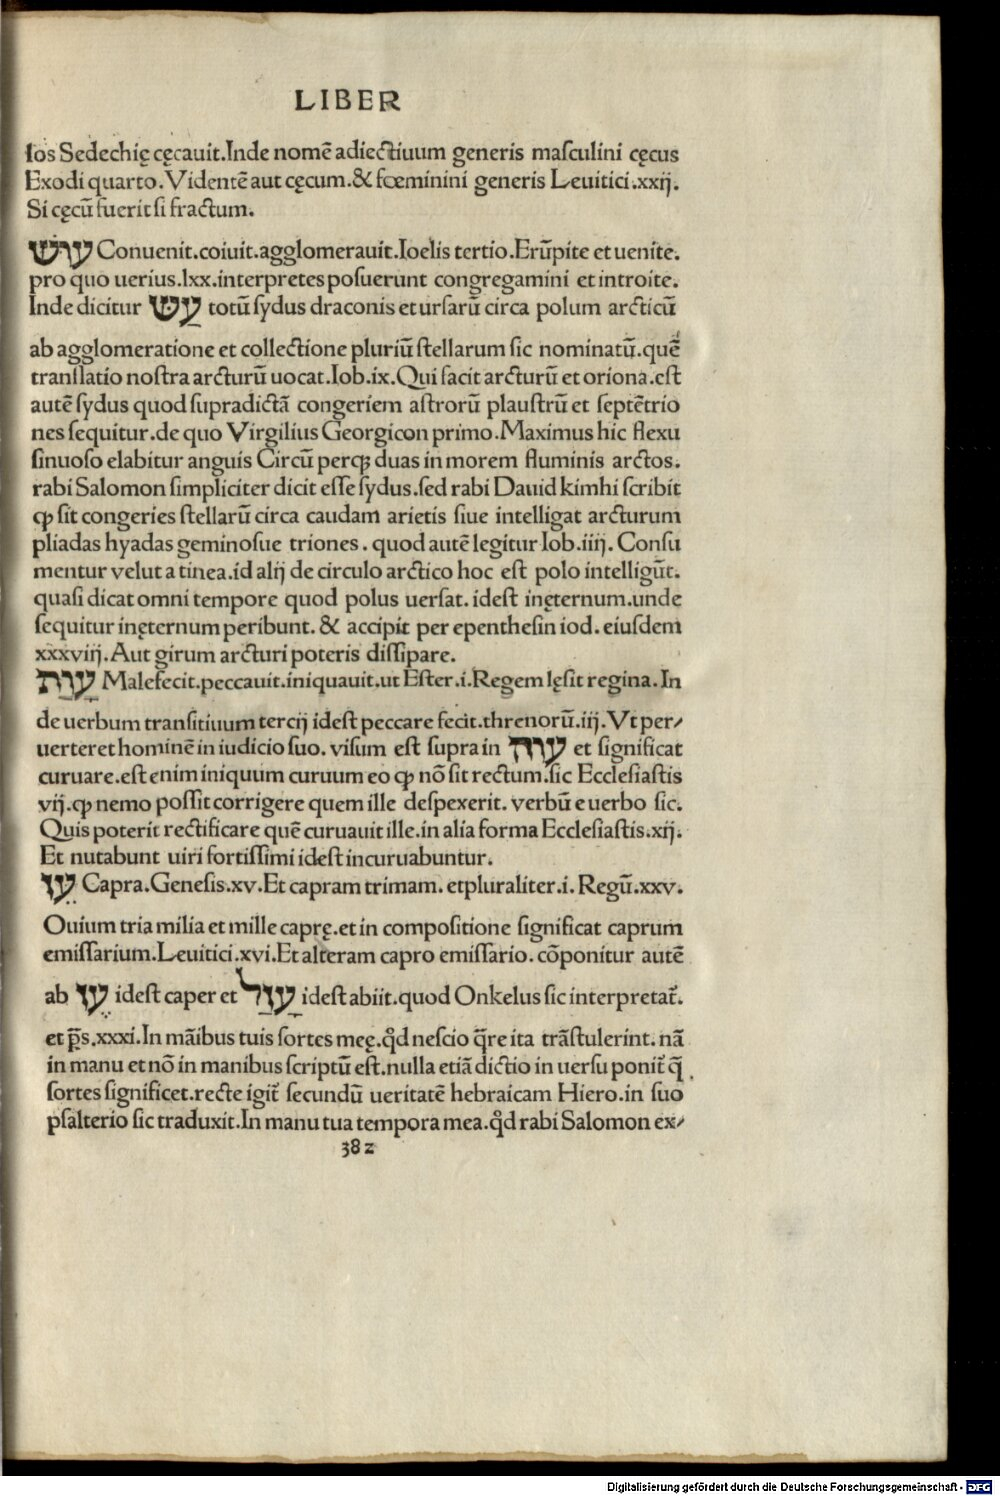 LIBER
los Sedechię cęcauit.Inde nomē adiectiuum generis masculini cęcus
Exodi quarto.Videntē aut cęcum.& fœminini generis Leuitici.xxij.
Si cęcū fuerit si fractum.
עוּשׁ Conuenit.coiuit.agglomerauit.Ioelis tertio.Erūpite et uenite.
pro quo uerius.lxx.interpretes posuerunt congregamini et introite.
Inde dicitur עָשׁ totū sydus draconis et ursarū circa polum arcticū
ab agglomeratione et collectione pluriū stellarum sic nominatū.quē
translatio nostra arcturū uocat.Iob.ix.Qui facit arcturū et oriona.est
autē sydus quod supradictā congeriem astrorū plaustrū et septētrio
nes sequitur.de quo Virgilius Georgicon primo.Maximus hic flexu
sinuoso elabitur anguis Circū perqꝫ duas in morem fluminis arctos.
rabi Salomon simpliciter dicit esse sydus.sed rabi Dauid kimhi scribit
ꝙ sit congeries stellarū circa caudam arietis siue intelligat arcturum
pliadas hyadas geminosue triones. quod autē legitur Iob.iiij. Consu
mentur velut a tinea.id alij de circulo arctico hoc est polo intelligūt.
quasi dicat omni tempore quod polus uersat. idest inęternum.unde
sequitur inęternum peribunt. & accipit per epenthesin iod. eiusdem
xxxviij.Aut girum arcturi poteris dissipare.
עָוַת Malefecit.peccauit.iniquauit.ut Ester.i.Regem lęsit regina.In
de uerbum transitiuum tercij idest peccare fecit.threnorū.iij.Vt per⸗
uerteret hominē in iudicio suo. visum est supra in עוה et significat
curuare.est enim iniquum curuum eo ꝙ nō sit rectum.sic Ecclesiastis
vij.ꝙ nemo possit corrigere quem ille despexerit. verbū e uerbo sic.
Quis poterit rectificare quē curuauit ille.in alia forma Ecclesiastis.xij.
Et nutabunt uiri fortissimi idest incuruabuntur.
עֵז Capra.Genesis.xv.Et capram trimam. et pluraliter.i. Regū.xxv.
Ouium tria milia et mille caprę.et in compositione significat caprum
emissarium.Leuitici.xvi.Et alteram capro emissario. cōponitur autē
ab עֵז idest caper et אָזַל idest abiit.quod Onkelus sic interpretat᷑.
et p̄s.xxxi.In māibus tuis sortes meę.qd̄ nescio q̄re ita trāstulerint. nā
in manu et nō in manibus scriptū est.nulla etiā dictio in uersu ponit᷑ q̄
sortes significet.recte igit᷑ secundū ueritatē hebraicam Hiero.in suo
psalterio sic traduxit.In manu tua tempora mea.qd̄ rabi Salomon ex⸗
382
Digitalisierung gefördert durch die Deutsche Forschungsgemeinschaft - DFG